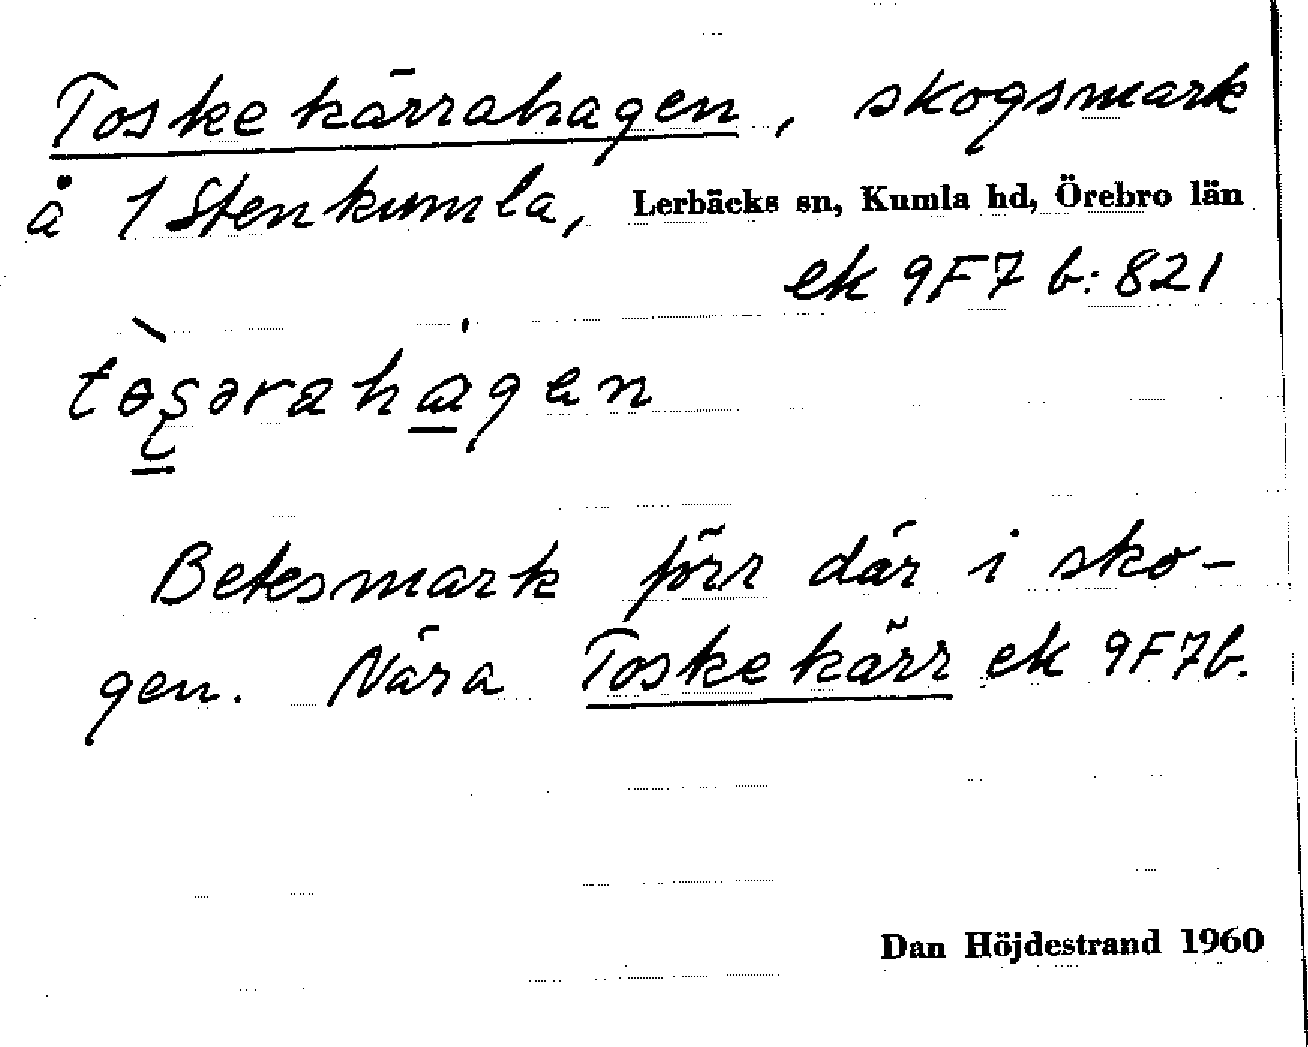 Toskekärrahagen, skogsmark
å 1 Stenkumla, Lerbäcks sn, Kumla hd, Örebro län
ek 9F7 b:821
Betesmark förr där i sko-
gen. Nära Toskekärr ek 9F7b.
Dan Höjdestrand 1960